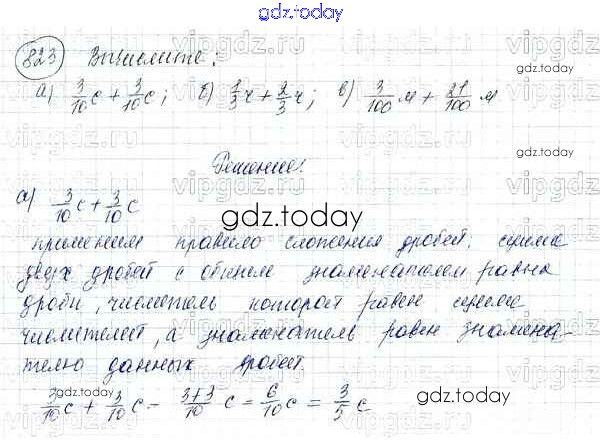 gdz.today
823 Вычислите:
а) 3/10 с + 3/10 с; б) 1/3 ч + 2/3 ч; в) 3/100 м + 21/100 м
gdz.today
Решение:
а) 3/10 с + 3/10 с
gdz.today
применим правило сложения дробей: сумма
двух дробей с общим знаменателем равна
дроби, числитель которой равен сумме
числителей, а знаменатель равен знамена-
телю данных дробей.
gdz.today
gdz.today
3/10 с + 3/10 с = 3+3/10 с = 6/10 с = 3/5 с